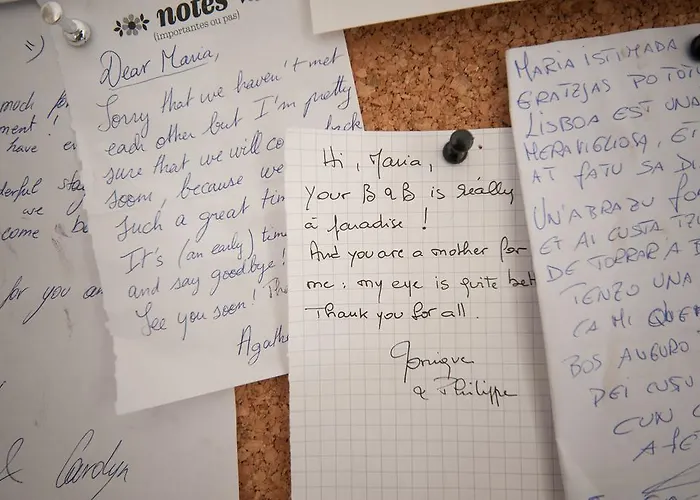 =)
much for
ment!
have
derful stay
we
come be
for you an
& Carolyn
notes
(importantes ou pas)
Dear Maria,
Sorry that we haven't met
each other but I'm pretty
sure that we will co back
soon, because we
such a great tim
It's (an early) time
and say goodbye!
See you soon!
Agath
Hi, Maria,
Your B&B is really
a paradise!
And you are a mother for
me : my eye is quite bett
Thank you for all.
& Philippe
MARIA ISTIMADA
GRATZIAS PO TOT
LISBOA EST UNA
MERAVIGLIOSA, ET
AT FATU SA DI
UN'ABRATZU FO
ET AI CUSTA
DE TORRAR A
TENZO UNA
CA MI
BOS AUGURO
DEI CUSU
CUN
AFET